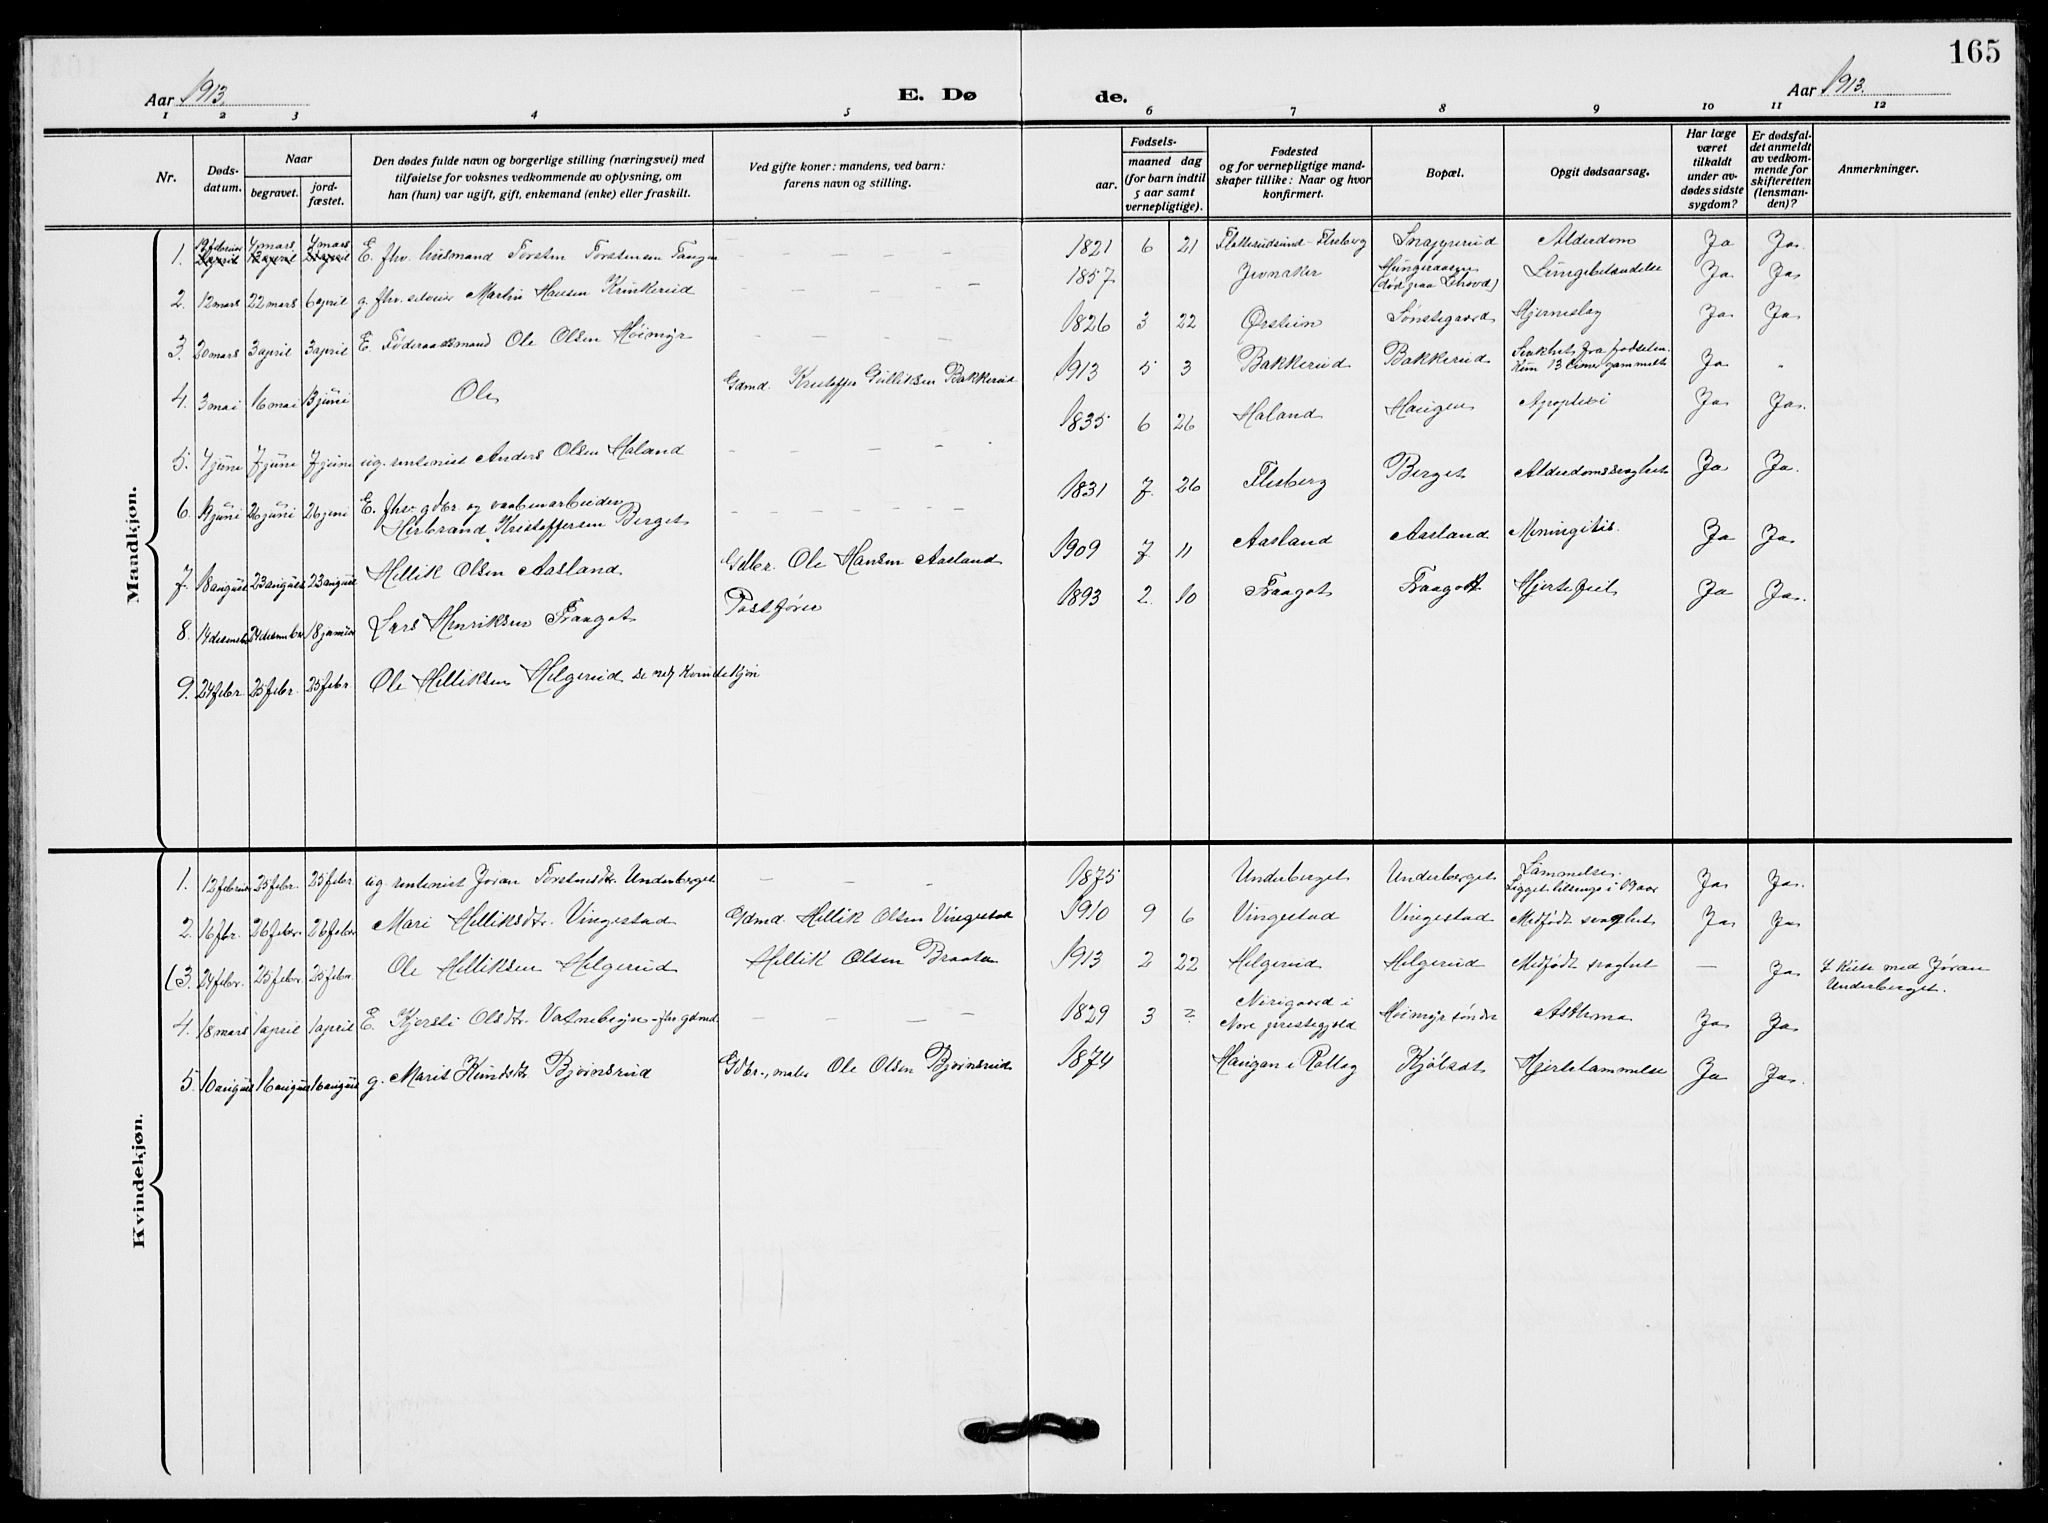 165
Aar 1913.
E. Dø de.
Aar 1913.
1 2 3 4 5 6 7 8 9 10 11 12
Nr.
Døds-
datum.
Naar
begravet.
jord-
fæstet.
Den dødes fulde navn og borgerlige stilling (næringsvei) med
tilføielse for voksnes vedkommende av oplysning, om
han (hun) var ugift, gift, enkemand (enke) eller fraskilt.
Ved gifte koner: mandens, ved barn:
farens navn og stilling.
Fødsels-
aar.
maaned dag
(for barn indtil
5 aar samt
vernepligtige).
Fødested
og for vernepligtige mand-
skaper tillike: Naar og hvor
konfirmert.
Bopæl.
Opgit dødsaarsag.
Har læge
været
tilkaldt
under av-
dødes sidste
sygdom?
Er dødsfal-
det anmeldt
av vedkom-
mende for
skifteretten
(lensman-
den)?
Anmerkninger.
Mandkjøn.
1. 19 februar 4 mars 4 mars E. fhv. husmand Torsten Torstensen Tangen – – – – – 1821 6 21 Flatterudsund - Flesberg Snapperud Alderdom Ja Ja.
2. 12 mars 22 mars 6 april g. fhv. Martin Hansen Krinkerud – – – – – 1857 Jevnaker (død paa Lehovd) Lungebetændelse Ja Ja
3. 20 mars 3 april 3 april E. Føderaadsmand Ole Olsen Høimyr – – – – – 1826 3 22 Ørstein Sønstegaard Hjerneslag Ja Ja
4. 3 mai 16 mai 13 juni Ole Gdmd. Kristoffer Gulliksen Bakkerud 1913 5 3 Bakkerud Bakkerud Svakhet fra fødselen. Kun 13 timer gammelt Ja "
5. 4 juni 7 juni 7 juni ug. rentenist Anders Olsen Haland – – – – 1835 6 26 Haland Haugen Apoplexi Ja Ja.
6. 19 juni 26 juni 26 juni E. fhv. gdbr. og vaabenarbeider
Herbrand Kristoffersen Berget – – – – – 1831 7 26 Flesberg Berget Alderdomssvaghet Ja Ja.
7. 18 august 23 august 23 august Hellik Olsen Aasland Gdbr. Ole Hansen Aasland 1909 7 11 Aasland Aasland Meningitis. Ja Ja.
8. 14 desember 24 desember 18 januar Lars Henriksen Traagot Postfører 1893 2 10 Traagot Traagot Hjertefeil Ja Ja.
9. 24 febr. 25 febr. 25 febr. Ole Helliksen Helgerud se ned Kvindekjøn
Kvindekjøn.
1. 12 februar 25 febr. 25 febr. ug. rentenist Jøran Torstensdtr. Underberget – – – 1875 Underberget Underberget Lammelse.
Ligget tilsengs i 19 aar Ja Ja.
2. 16 fbr. 26 febr. 26 febr. Mari Helliksdtr. Vingestad Gdmd. Hellik Olsen Vingestad 1910 9 6 Vingestad Vingestad Medfødt svaghet Ja Ja
(3. 24 febr. 25 febr. 25 febr. Ole Helliksen Helgerud Hellik Olsen Braaten 1913 2 22 Helgerud Helgerud Medfødt svaghet – Ja I kiste med Jøran
Underberget.
4. 18 mars 1 april 1 april E. Kjersti Olsdtr. Vatnebryn - fhv. gdmd. – – – – 1829 3 ? Nerigaard i
Nore prestegjeld Høimyr søndre Asthma Ja Ja
5. 10 august 16 august 16 august g. Marit Knudsdtr. Bjørnsrud Gdbr., maler Ole Olsen Bjørnsrud 1874 Haugan i Rollag Kjølsdt Hjertelammelse Ja Ja.